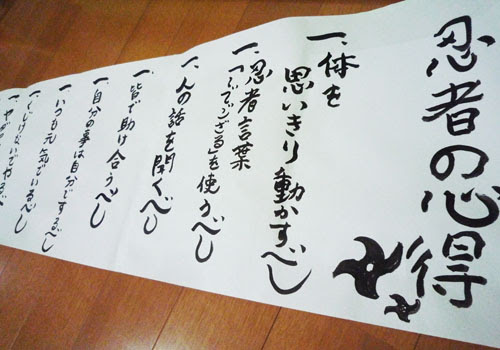 忍者の心得
一、体を
思いきり動かすべし
一、忍者言葉
「つ」で「ござる」を使うべし
一、人の話を聞くべし
一、皆で助け合うべし
一、自分の事は自分でするべし
一、いつも元気でいるべし
一、くじけないでやるべし